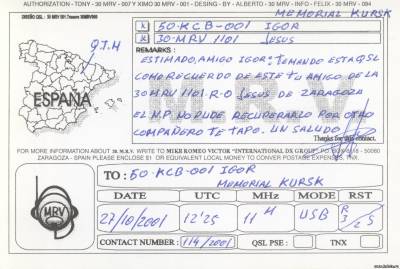 AUTHORIZATION - TONY - 30 MRV - 007 Y XIMO 30 MRV - 001 - DESING - BY - ALBERTO - 30 MRV - INFO - FELIX - 30 MRV - 094
MEMORIAL KURSK
50-KCB-001 IGOR
30-MRV 1101 JESUS
REMARKS :
ESTIMADO, AMIGO IGOR: TEMANDO ESTA QSL
COMO RECUERDO DE ESTE TU AMIGO DE LA
30 MRV 1101. R.O JESUS DE ZARAGOZA
EL MP. NO PUDE RECUPERARLO POR OTRO
COMPAÑERO TE TAPO. UN SALUDO
Thanks for this contact
QTH
ESPAÑA
M.R.V
FOR MORE INFORMATION ABOUT 30. M.R.V. WRITE TO MIKE ROMEO VICTOR "INTERNATIONAL DX GROUP"
ZARAGOZA - SPAIN PLEASE ENCLOSE $1 OR EQUIVALENT LOCAL MONEY TO CONVER POSTAGE EXPENSES, TNX.
MRV
TO : 50-KCB-001 IGOR
MEMORIAL KURSK
DATE UTC MHz MODE RST
27/10/2001 12'25 11 M USB R/3 / 2 5
CONTACT NUMBER : 114/2001 QSL PSE : TNX